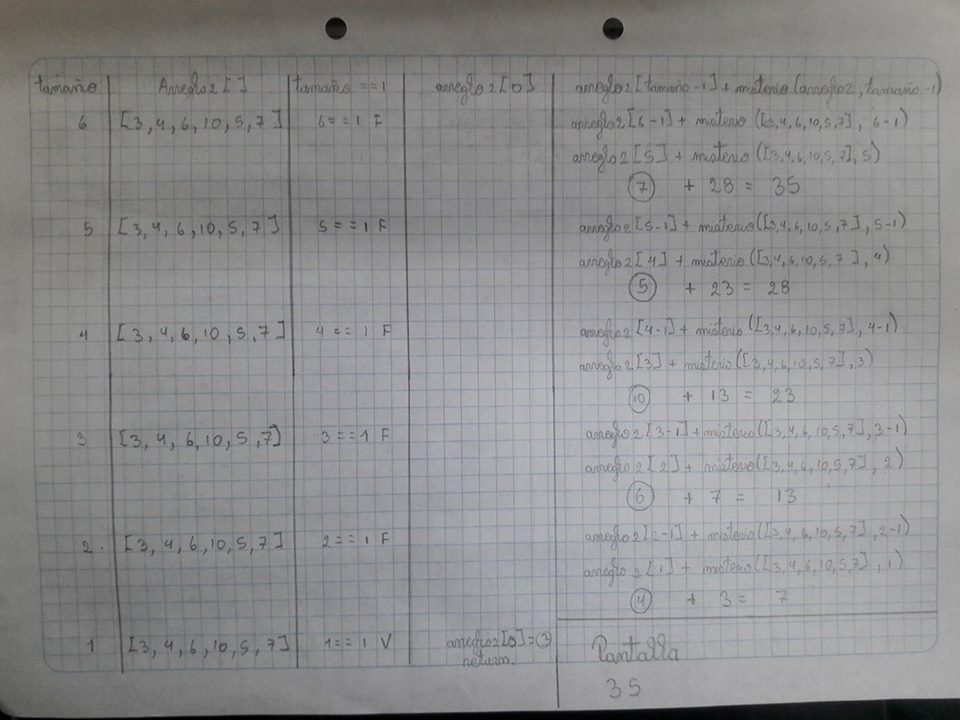 tamaño Arreglo2[] tamaño==1 arreglo2[0] arreglo2[tamaño-1]+misterio(arreglo2,tamaño-1)
6 [3,4,6,10,5,7] 6==1 F arreglo2[6-1]+misterio([3,4,6,10,5,7], 6-1)
arreglo2[5]+misterio([3,4,6,10,5,7],5)
7 + 28 = 35
5 [3,4,6,10,5,7] 5==1 F arreglo2[5-1]+misterio([3,4,6,10,5,7],5-1)
arreglo2[4]+misterio([3,4,6,10,5,7],4)
5 + 23 = 28
4 [3,4,6,10,5,7] 4==1 F arreglo2[4-1]+misterio([3,4,6,10,5,7],4-1)
arreglo2[3]+misterio([3,4,6,10,5,7],3)
10 + 13 = 23
3 [3,4,6,10,5,7] 3==1 F arreglo2[3-1]+misterio([3,4,6,10,5,7],3-1)
arreglo2[2]+misterio([3,4,6,10,5,7],2)
6 + 7 = 13
2. [3,4,6,10,5,7] 2==1 F arreglo2[2-1]+misterio([3,4,6,10,5,7],2-1)
arreglo2[1]+misterio([3,4,6,10,5,7],1)
4 + 3 = 7
1 [3,4,6,10,5,7] 1==1 V arreglo2[0]=3 Pantalla
return. 35